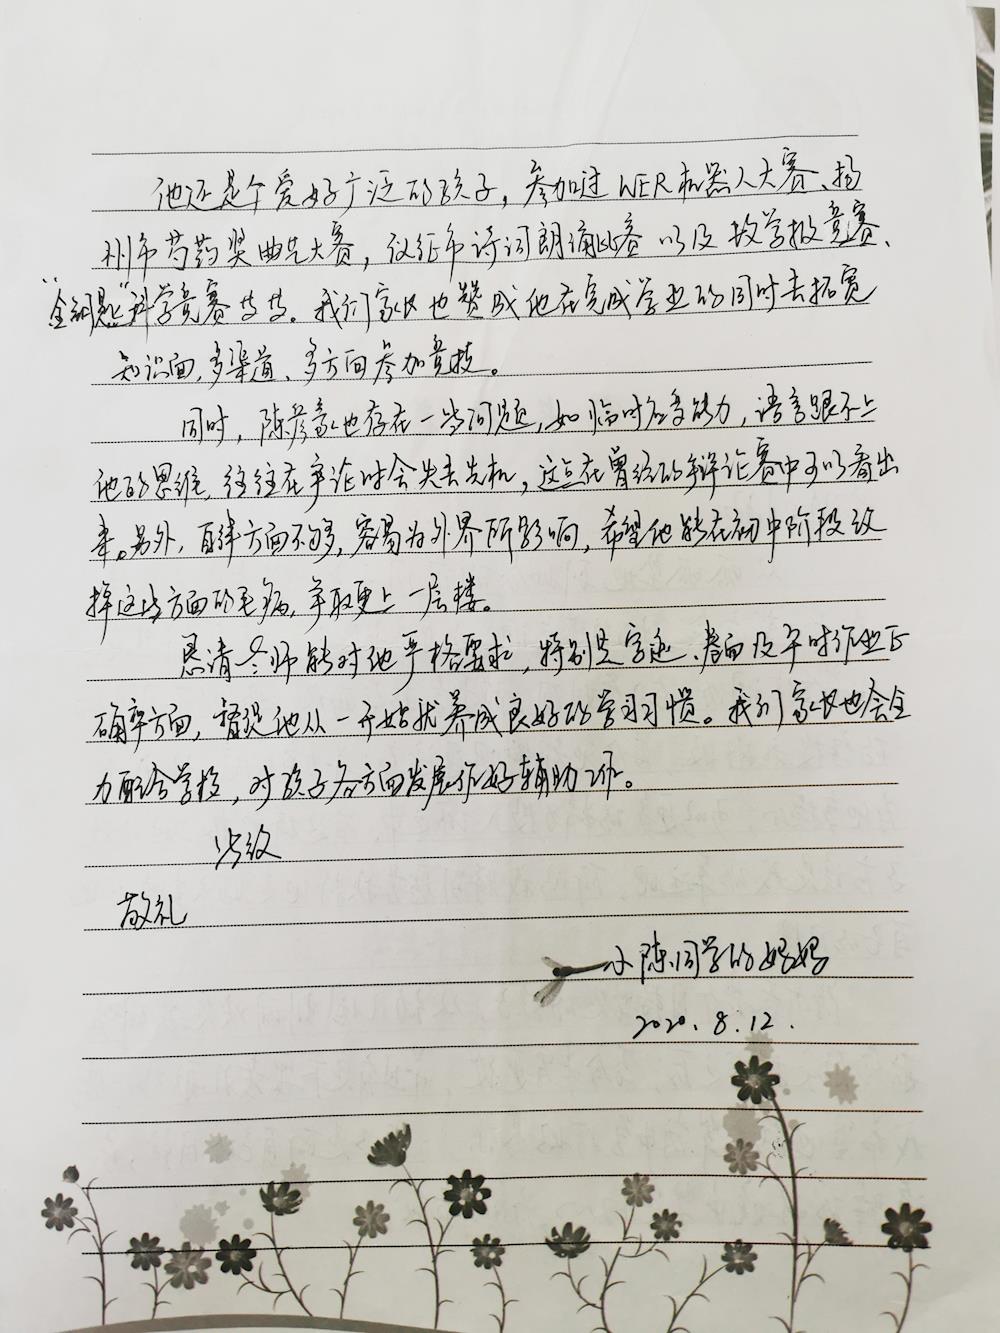 他还是个爱好广泛的孩子，参加过WER机器人大赛、扬
州市芍药奖曲艺大赛，仪征市诗词朗诵比赛以及数学报竞赛、
“金钥匙”科学竞赛等等。我们家长也赞成他在完成学业的同时去拓宽
知识面，多渠道、多方面参加竞技。
同时，陈彦豪也存在一些问题，如临时应变能力，语言跟不上
他的思维，往往在争论时会失去先机，这点在曾经的辩论赛中可以看出
来。另外，自律方面不够，容易为外界所影响，希望他能在初中阶段改
掉这些方面的毛病，争取更上一层楼。
恳请老师能对他严格要求，特别是字迹、卷面及平时作业正
确率方面，督促他从一开始就养成良好的学习习惯。我们家长也会全
力配合学校，对孩子各方面发展作好辅助工作。
此致
敬礼
小陈同学的妈妈
2020.8.12.